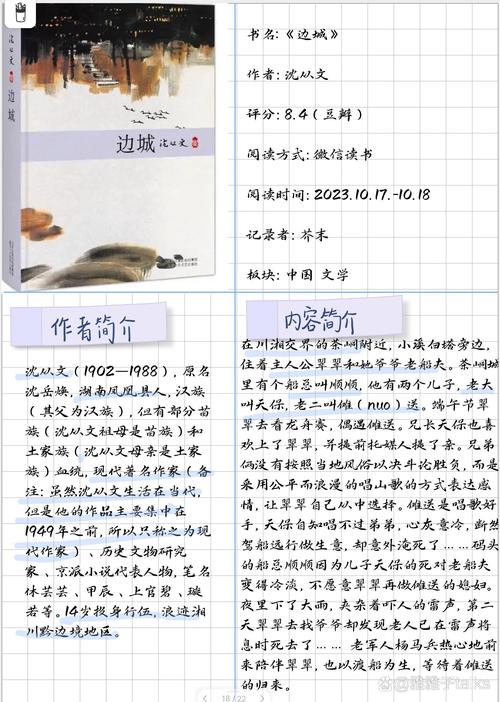 沈从文 著
边城
边城 沈从文 著
书名:《边城》
作者: 沈从文
评分: 8.4(豆瓣)
阅读方式: 微信读书
阅读时间: 2023.10.17.-10.18
记录者: 芥末
板块: 中国 文学
作者简介
沈从文(1902—1988), 原名
沈岳焕, 湖南凤凰县人, 汉族
(其父为汉族), 但有部分苗
族(沈从文祖母是苗族)和
土家族(沈从文母亲是土家
族)血统, 现代著名作家(备
注: 虽然沈从文生活在当代,
但是他的作品主要集中在
1949年之前, 所以只称之为现
代作家)、历史文物研究
家、京派小说代表人物, 笔名
休芸芸、甲辰、上官碧、璇
若等。14岁投身行伍, 浪迹湘
川黔边境地区。
内容简介
在川湘交界的茶峒附近, 小溪白塔旁边,
住着主人公翠翠和她爷爷老船夫。茶峒城
里有个船总叫顺顺, 他有两个儿子, 老大
叫天保, 老二叫傩(nuo)送。端午节翠
翠去看龙舟赛, 偶遇傩送。兄长天保也喜
欢上了翠翠, 并提前托媒人提了亲。兄弟
俩没有按照当地风俗以决斗论胜负, 而是
采用公平而浪漫的唱山歌的方式表达感
情, 让翠翠自己从中选择。傩送是唱歌好
手, 天保自知唱不过弟弟, 心灰意冷, 断然
驾船远行做生意, 却意外淹死了……码头
的船总顺顺因为儿子天保的死对老船夫
变得冷淡, 不愿意翠翠再做傩送的媳妇。
夜里下了大雨, 夹杂着吓人的雷声, 第二
天翠翠去找爷爷却发现老人已在雷声将
息时死去了…… 老军人杨马兵热心地前
来陪伴翠翠, 也以渡船为生, 等待着傩送
的归来。
18/22
@雅雅子talks